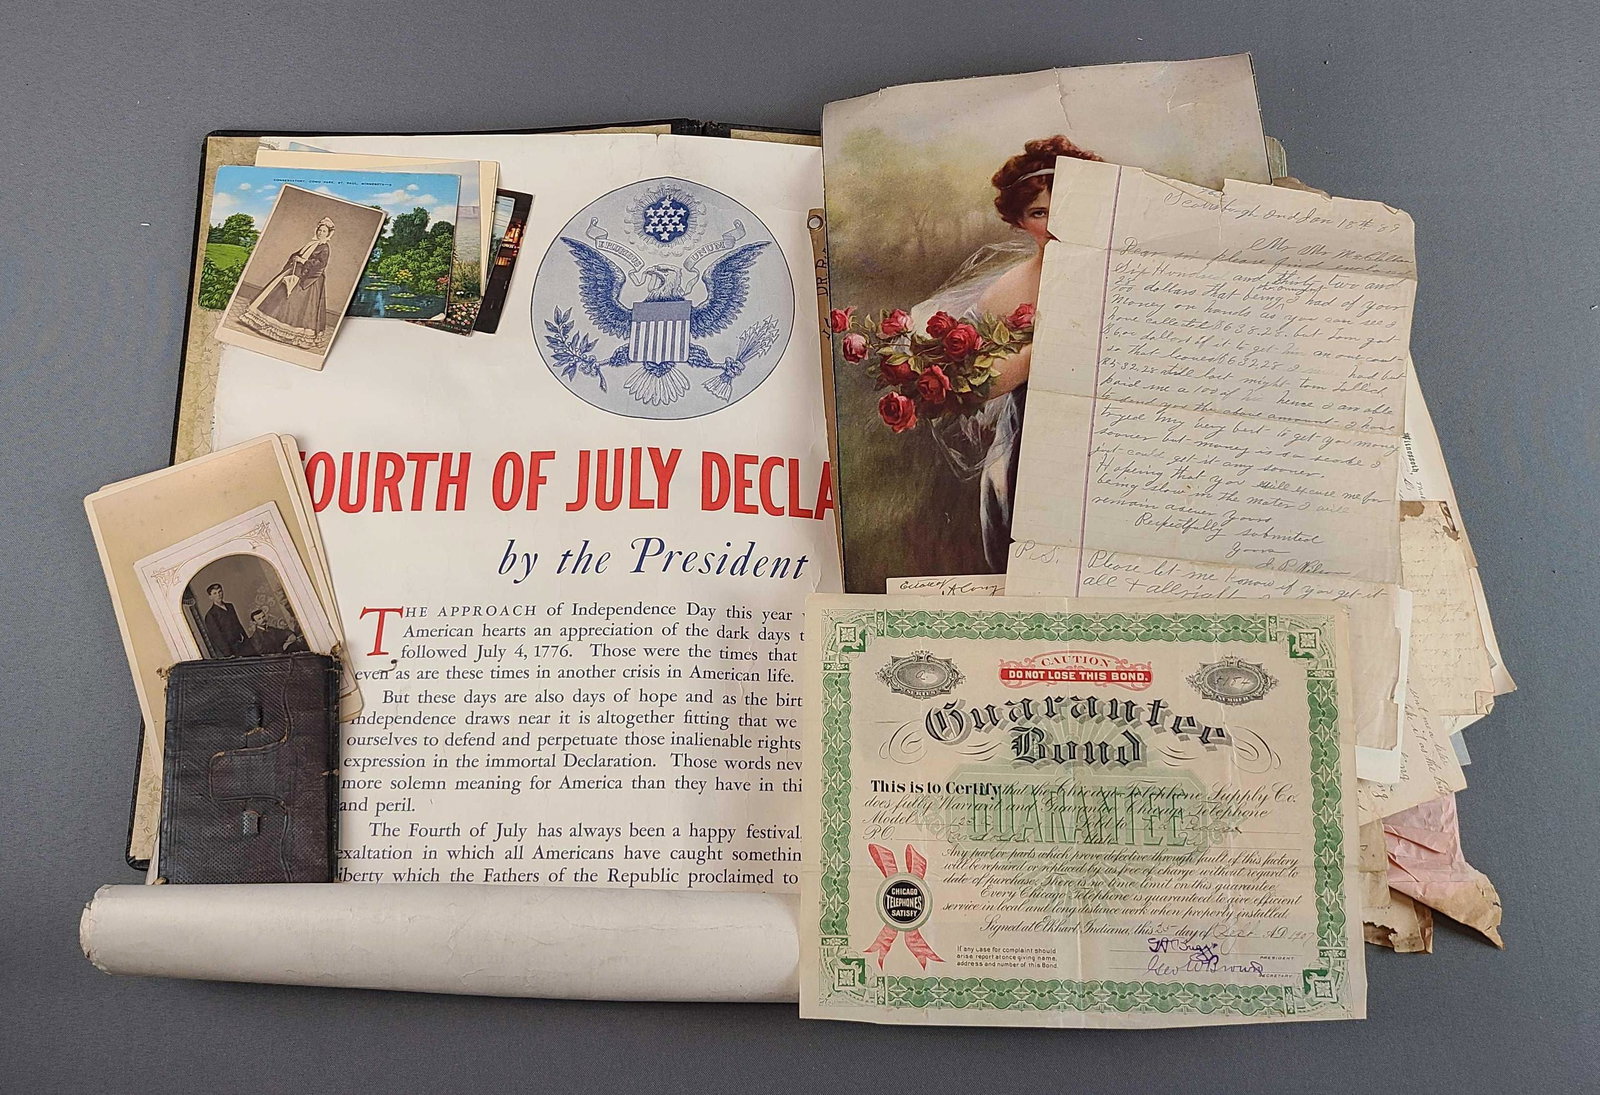 CONSERVATORY, COMO PARK, ST. PAUL, MINNESOTA
E PLURIBUS UNUM
FOURTH OF JULY DECLA
by the President
THE APPROACH of Independence Day this year
American hearts an appreciation of the dark days t
followed July 4, 1776. Those were the times that
even as are these times in another crisis in American life.
But these days are also days of hope and as the birt
Independence draws near it is altogether fitting that we
ourselves to defend and perpetuate those inalienable rights
expression in the immortal Declaration. Those words nev
more solemn meaning for America than they have in thi
and peril.
The Fourth of July has always been a happy festival
exaltation in which all Americans have caught somethin
liberty which the Fathers of the Republic proclaimed to
DR. P.
Ind Jan 18th 89
Mr
Dear sir please find inclosed
and thirty two and
dollars that being I had of your
Money on hands as you can see I
have collected $638.28. but Tom got
$6.00 dollars of it to get him an over coat
so that leaves $632.28 I had but
till last night Tom
paid me a 100 of hence I am able
to send you the above amount I have
tryed my very best to get you money
sooner but money is so scarce I
just could get it any sooner
Hopeing that you will excuse me for
being slow in the mater I will
remain as ever yours
Respectfully submited
Yours
J. P. Wilson
P.S. Please let me know if you get it
all
Estate of
A Long
CAUTION
DO NOT LOSE THIS BOND.
SERIES
NUMBER
Guarantee
Bond
This is to Certify that the Chicago Telephone Supply Co.
does fully Warrant and Guarantee Chicago Telephone
Model
P.O.
GUARANTEE
Any part or parts which prove defective through fault of this factory
will be repaired or replaced by us free of charge without regard to
date of purchase. There is no time limit on this guarantee.
Every Chicago Telephone is guaranteed to give efficient
service in local and long distance work when properly installed.
Signed at Elkhart, Indiana, this 25 day of A.D. 1907
CHICAGO
TELEPHONES
SATISFY
If any case for complaint should
arise report at once giving name,
address and number of this Bond.
PRESIDENT
Geo W Brown
SECRETARY